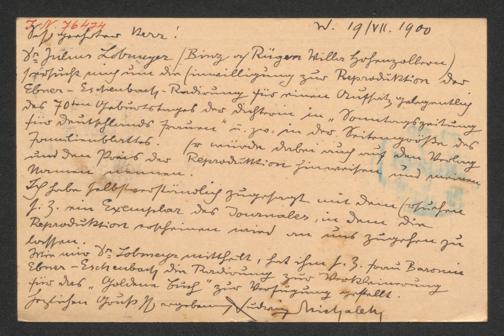 I. N. 76474
W. 19/VII. 1900
Sehr geehrter Herr!
Dr. Julius Lohmeyer (Binz a/ Rügen Villa Hohenzollern)
ersucht mich um die Einwilligung zur Reproduktion der
Ebner-Eschenbach-Radirung für einen Aufsatz gelegentlich
des 70ten Geburtstages der Dichterin in „Sonntagszeitung
für Deutschlands Frauen" u. zw. in der Seitengröße des
Familienblattes. Er würde dabei auch auf den Verlag
und den Preis der Reproduktion hinweisen und meinen
Namen nennen.
Ich habe selbstverständlich zugesagt mit dem Ersuchen
s. Z. ein Exemplar des Journales, in dem die
Reproduktion erscheinen wird an uns zugehen zu
lassen.
Wie mir Dr. Lohmeyer mittheilt, hat ihm s. Z. Frau Baronin
Ebner-Eschenbach die Radirung zur Verkleinerung
für das „Goldene Buch" zur Verfügung gestellt.
Herzlichen Gruß Ihr ergebener Ludwig Michalek